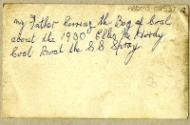 my Father having the Bag of Coal
about the 1930 Ellis Mc Hardy
Coal Boat the S.S Spray